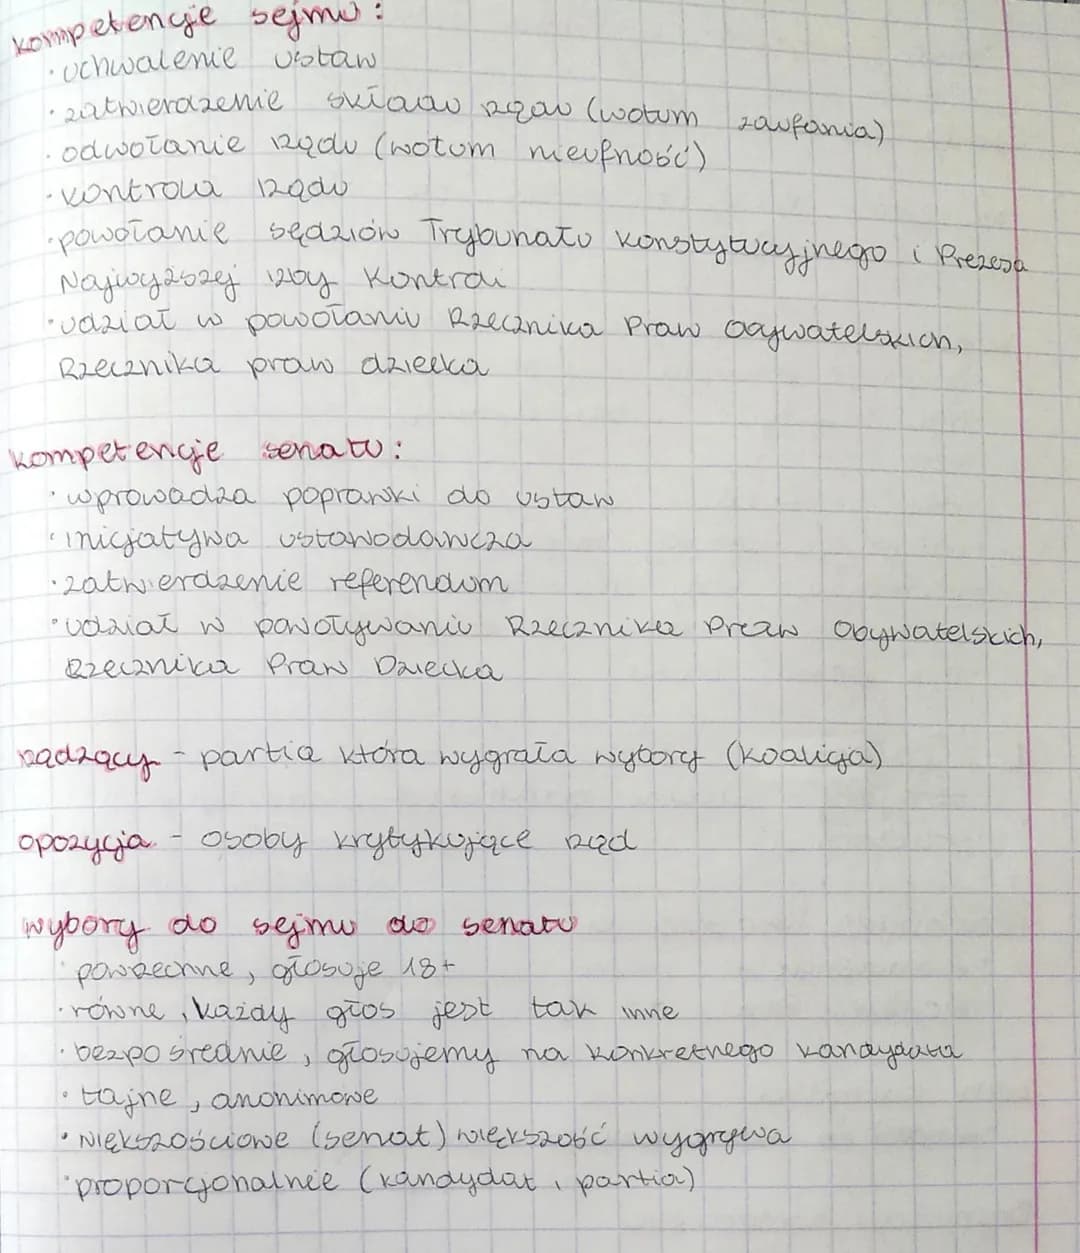 kompetencje sejmu:
· uchwalenie ustaw
· zatwierdzenie składu rządu (wotum zaufania)
· odwołanie rządu (wotum nieufność)
· kontrola rządu
· powołanie sędziów Trybunału Konstytucyjnego i Prezesa
Najwyższej Izby Kontroli
· udział w powołaniu Rzecznika Praw Obywatelskich,
Rzecznika praw dziecka
kompetencje senatu:
· wprowadza poprawki do ustaw
· inicjatywa ustawodawcza
· zatwierdzenie referendum
· udział w powoływaniu Rzecznika Praw Obywatelskich,
Rzecznika Praw Dziecka
rządzący - partia która wygrała wybory (koalicja)
opozycja - osoby krytykujące rząd
wybory do sejmu do senatu
· powrzechne, głosuje 18+
· równe, każdy głos jest tak inne
· bezpośrednie, głosujemy na konkretnego kandydata
· tajne, anonimowe
· większościowe (senat) większość wygrywa
· proporcjonalnie (kandydat, partia)